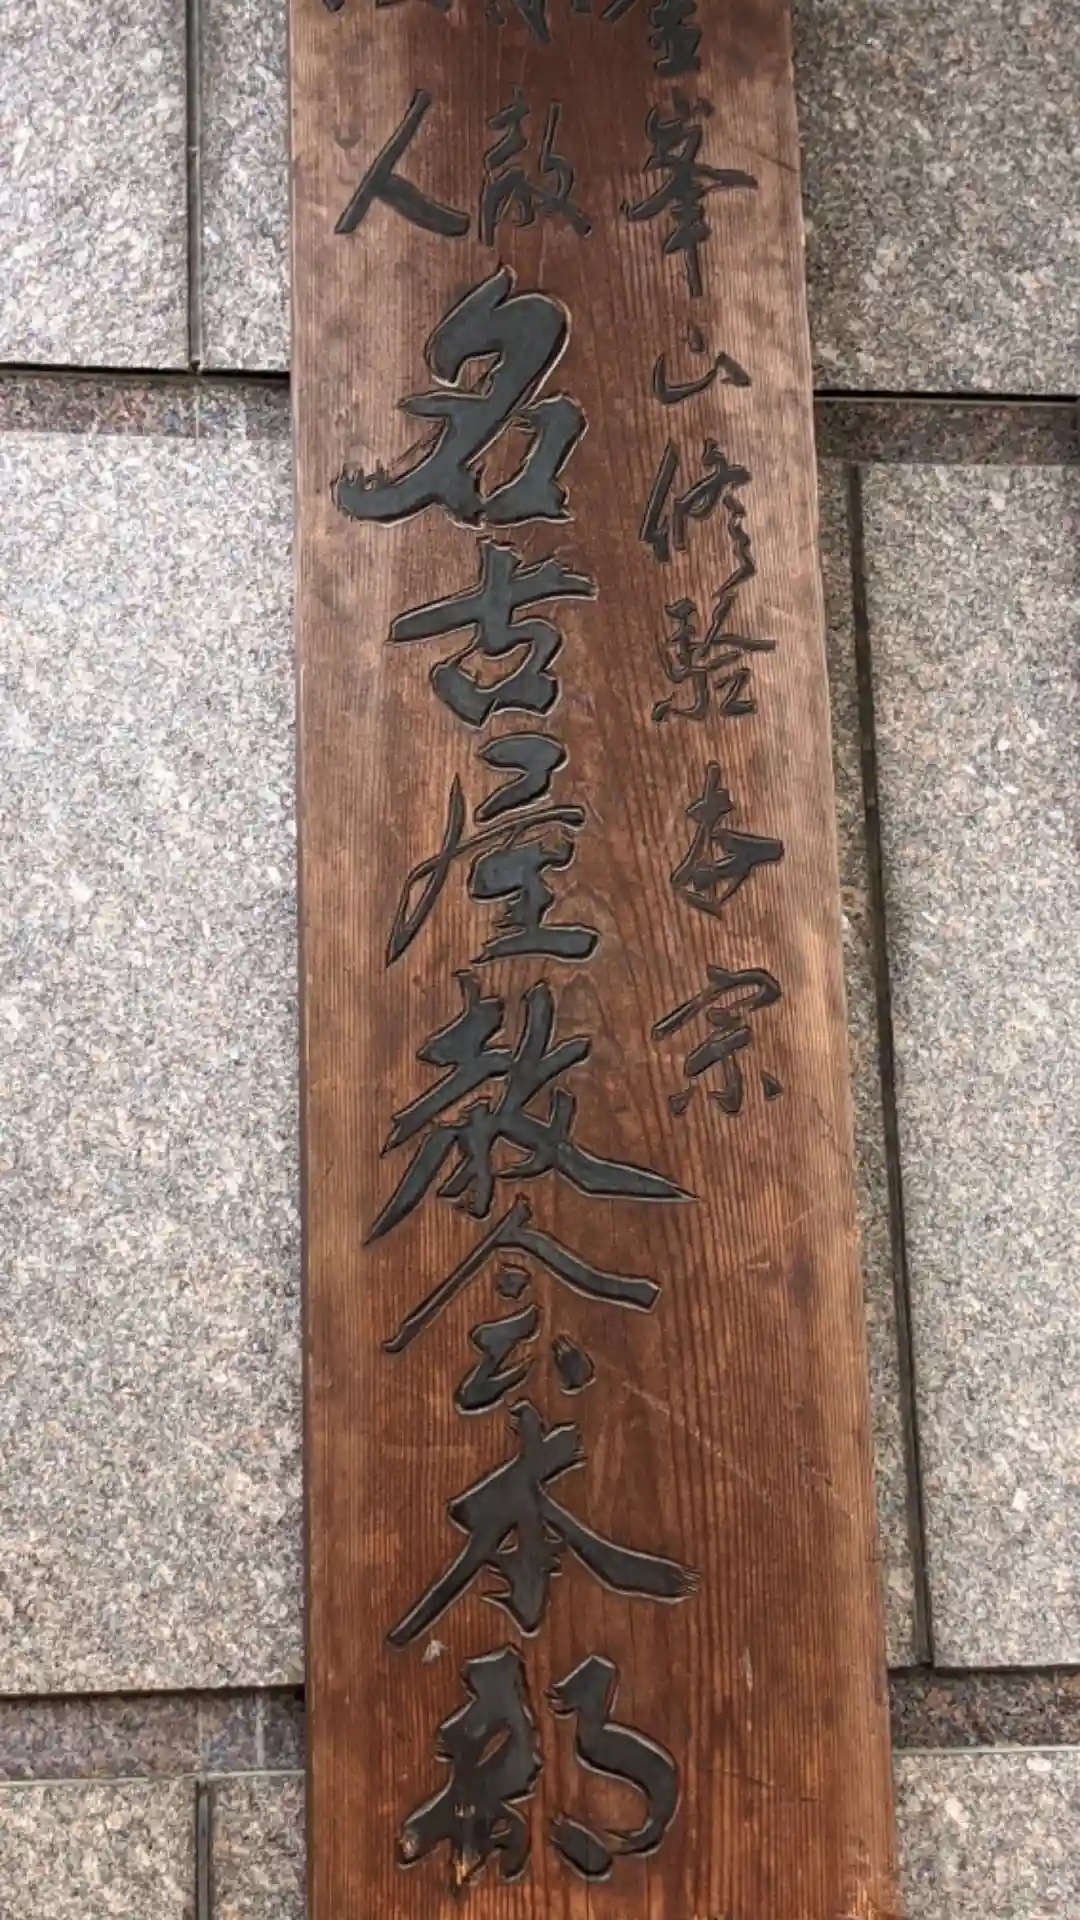 金峯山修験本宗
教
人
名古屋教会本部